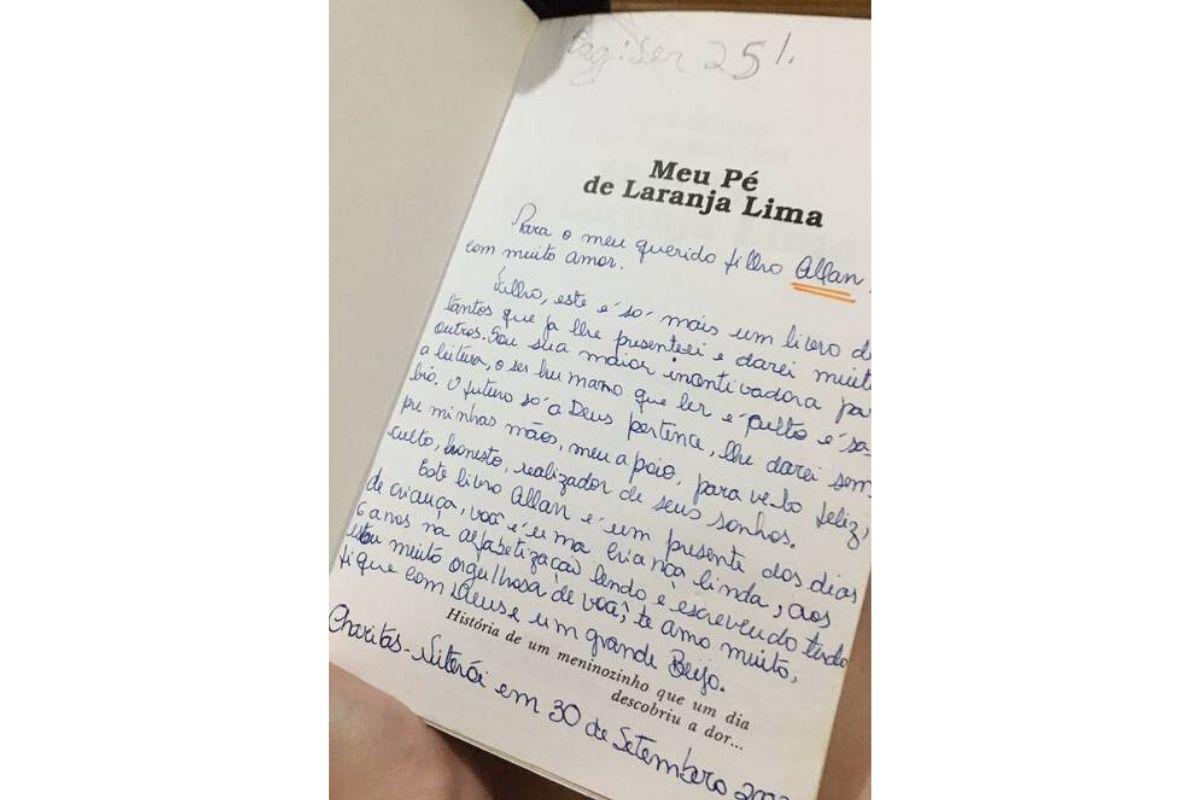 25%
Meu Pé
de Laranja Lima
Para o meu querido filho Allan,
com muito amor.
Filho, este é só mais um livro d
tantos que ja lhe presenteei e darei muit
outros. Sou sua maior incentivadora pa
a leitura, o ser humano que ler é culto é sá-
bio. O futuro só a Deus pertence, lhe darei sem
pre minhas mãos, meu apoio, para ve-lo feliz,
culto, honesto, realizador de seus sonhos.
Este livro Allan é um presente dos dias
de criança, você é uma criança linda, aos
6 anos na alfabetização lendo e escrevendo tudo
estou muito orgulhosa de você, te amo muito,
fique com Deus e um grande Beijo.
História de um meninozinho que um dia
descobriu a dor...
Charitas - Niterói em 30 de Setembro